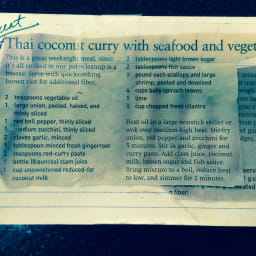 Great
Thai coconut curry with seafood and veget
This is a great weeknight meal, since
it's all cooked in one pot–cleanup is a
breeze. Serve with quick-cooking
brown rice for additional fiber.
2 teaspoons vegetable oil
1 large onion, peeled, halved, and
thinly sliced
1 red bell pepper, thinly sliced
medium zucchini, thinly sliced
2 cloves garlic, minced
1 tablespoon minced fresh gingerroot
teaspoons red-curry paste
bottle (8-ounce) clam juice
1 cup unsweetened reduced-fat
coconut milk
2 tablespoons light brown sugar
2 tablespoons fish sauce
pound each scallops and large
shrimp, peeled and deveined
4 cups baby spinach leaves
1 lime
cup chopped fresh cilantro
Heat oil in a large nonstick skillet or
wok over medium-high heat. Stir-fry
onion, red pepper and zucchini for
5 minutes. Stir in garlic, ginger and
curry paste. Add clam juice, coconut
milk, brown sugar and fish sauce.
Bring mixture to a boil, reduce heat
to low, and simmer for 2 minutes.
fiber.